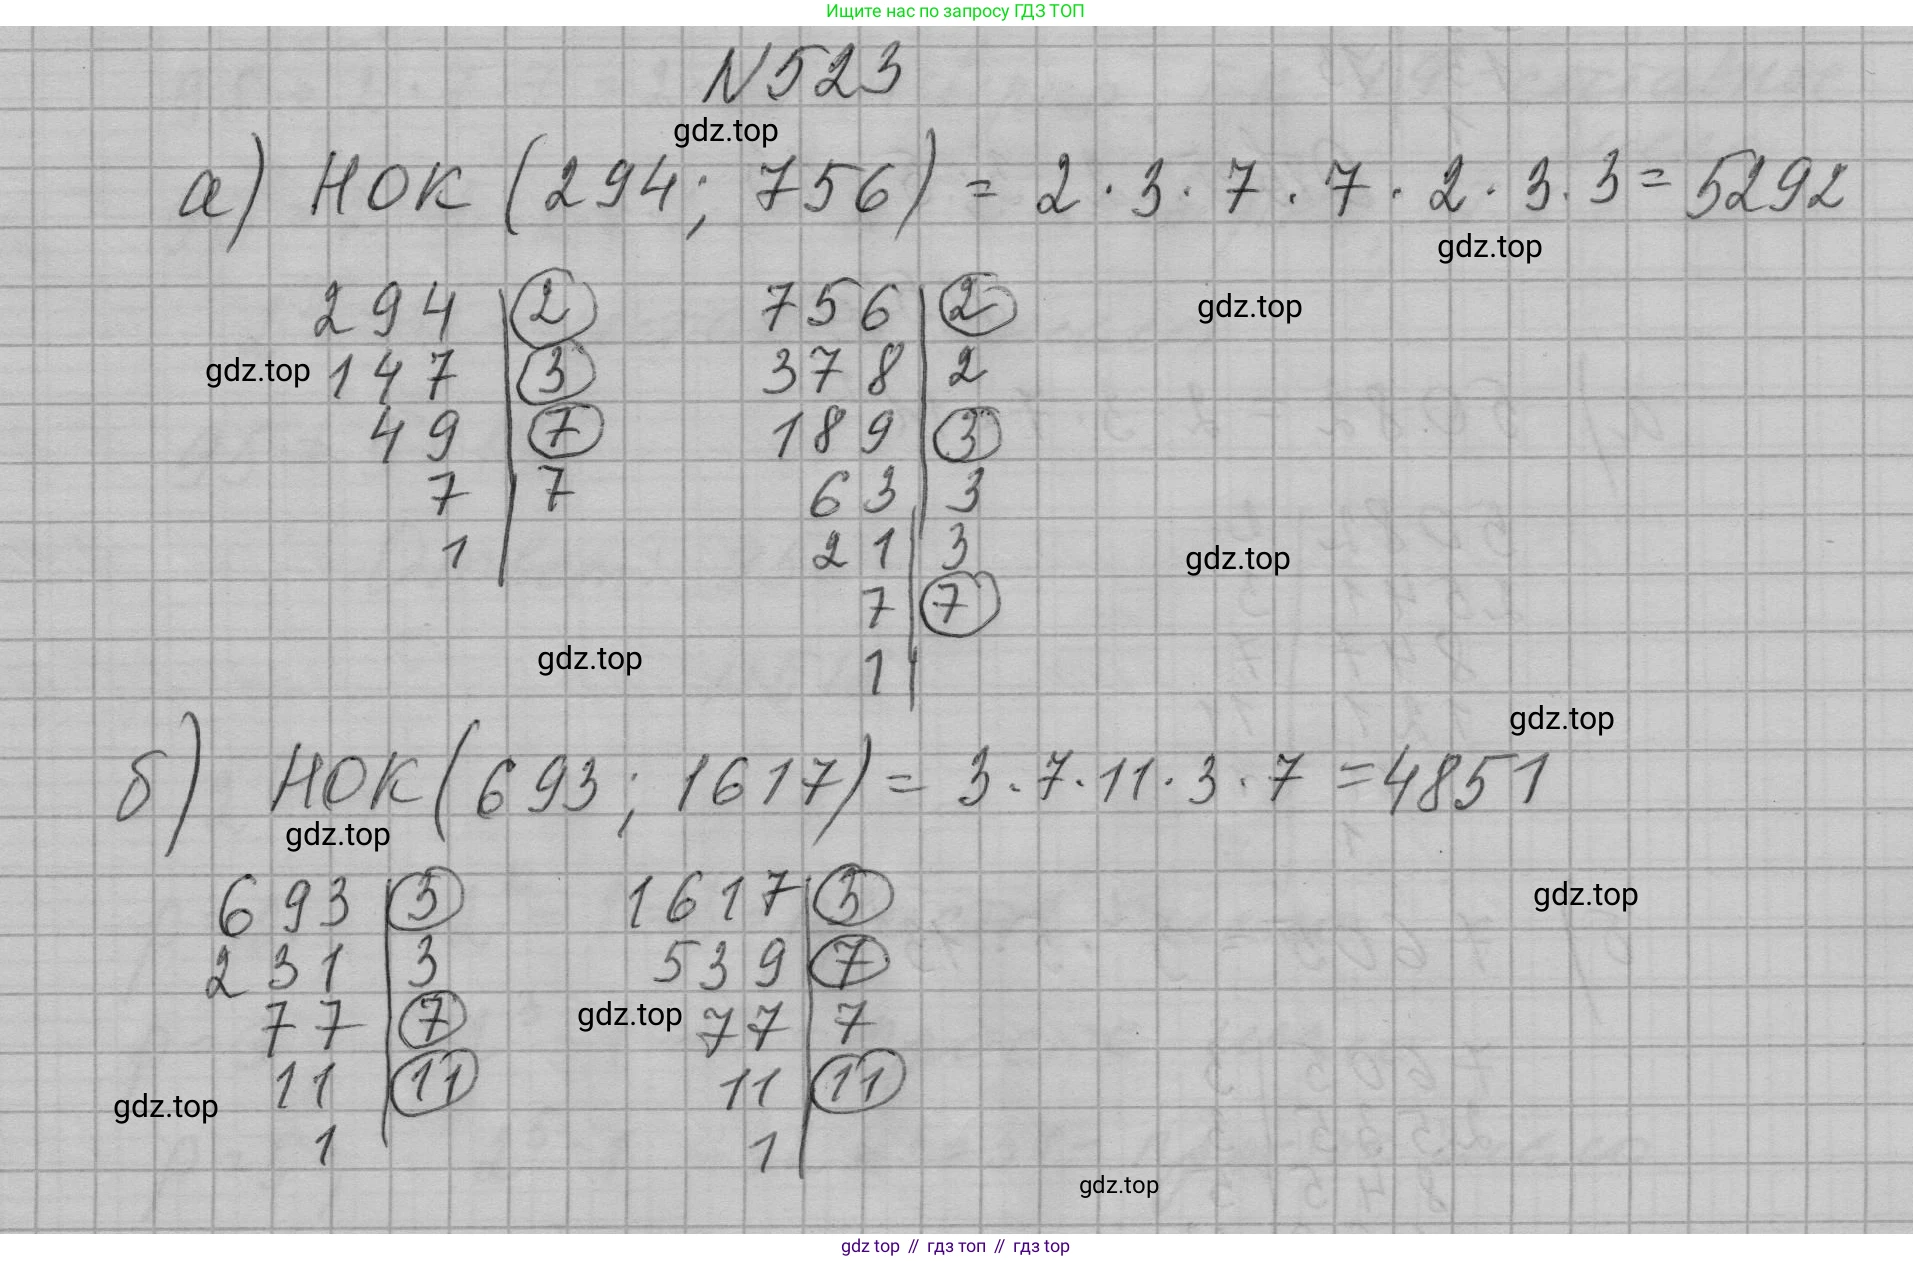 Ищите нас по запросу ГДЗ ТОП
N523
gdz.top
а) НОК (294; 756) = 2 · 3 · 7 · 7 · 2 · 3 · 3 = 5292
gdz.top
294 | 2 756 | 2
gdz.top
gdz.top 147 | 3 378 | 2
49 | 7 189 | 3
7 | 7 63 | 3
1 | 21 | 3
gdz.top
7 | 7
gdz.top 1 |
gdz.top
б) НОК (693; 1617) = 3 · 7 · 11 · 3 · 7 = 4851
gdz.top
693 | 3 1617 | 3
gdz.top
231 | 3 539 | 7
77 | 7 gdz.top 77 | 7
11 | 11 11 | 11
gdz.top
1 | 1 |
gdz.top
gdz top // гдз топ // гдз top